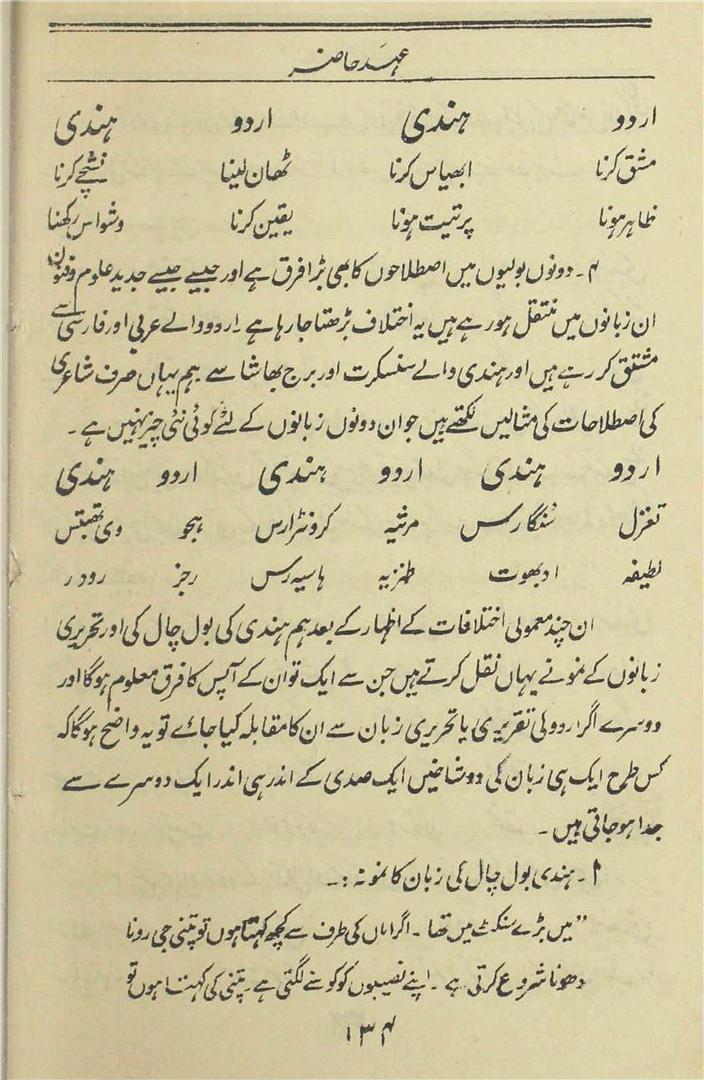 عہد حاضر
اردو ہندی اردو ہندی
مشق کرنا ابھیاس کرنا ٹھان لینا نشچے کرنا
ظاہر ہونا پرتیت ہونا یقین کرنا وشواس رکھنا
۴۔ دونوں بولیوں میں اصطلاحوں کا بھی بڑا فرق ہے اور جیسے جیسے جدید علوم و فنون
ان زبانوں میں منتقل ہو رہے ہیں یہ اختلاف بڑھتا جا رہا ہے۔ اردو والے عربی اور فارسی سے
مشتق کر رہے ہیں اور ہندی والے سنسکرت اور برج بھاشا سے ہم یہاں صرف شاعری
کی اصطلاحات کی مثالیں لکھتے ہیں جو ان دونوں زبانوں کے لئے کوئی نئی چیز نہیں ہے۔
اردو ہندی اردو ہندی اردو ہندی
تغزل سنگارس مرثیہ کرونٹرارس ہجو وی بھتس
لطیفہ ادبھوت طنزیہ ہاسیہ رس رجز رودر
ان چند معمولی اختلافات کے اظہار کے بعد ہم ہندی کی بول چال کی اور تحریری
زبانوں کے نمونے یہاں نقل کرتے ہیں جن سے ایک تو ان کے آپس کا فرق معلوم ہوگا اور
دوسرے اگر اردو کی تقریری یا تحریری زبان سے ان کا مقابلہ کیا جائے تو یہ واضح ہوگا کہ
کس طرح ایک ہی زبان کی دو شاخیں ایک صدی کے اندر ہی اندر ایک دوسرے سے
جدا ہو جاتی ہیں۔
۱۔ ہندی بول چال کی زبان کا نمونہ :۔
”میں بڑے سنکٹ میں تھا۔ اگر اماں کی طرف سے کچھ کہتا ہوں تو پتنی جی رونا
دھونا شروع کرتی ہے۔ اپنے نصیبوں کو کوسنے لگتی ہے۔ پتنی کی کہتا ہوں تو
۱۳۴